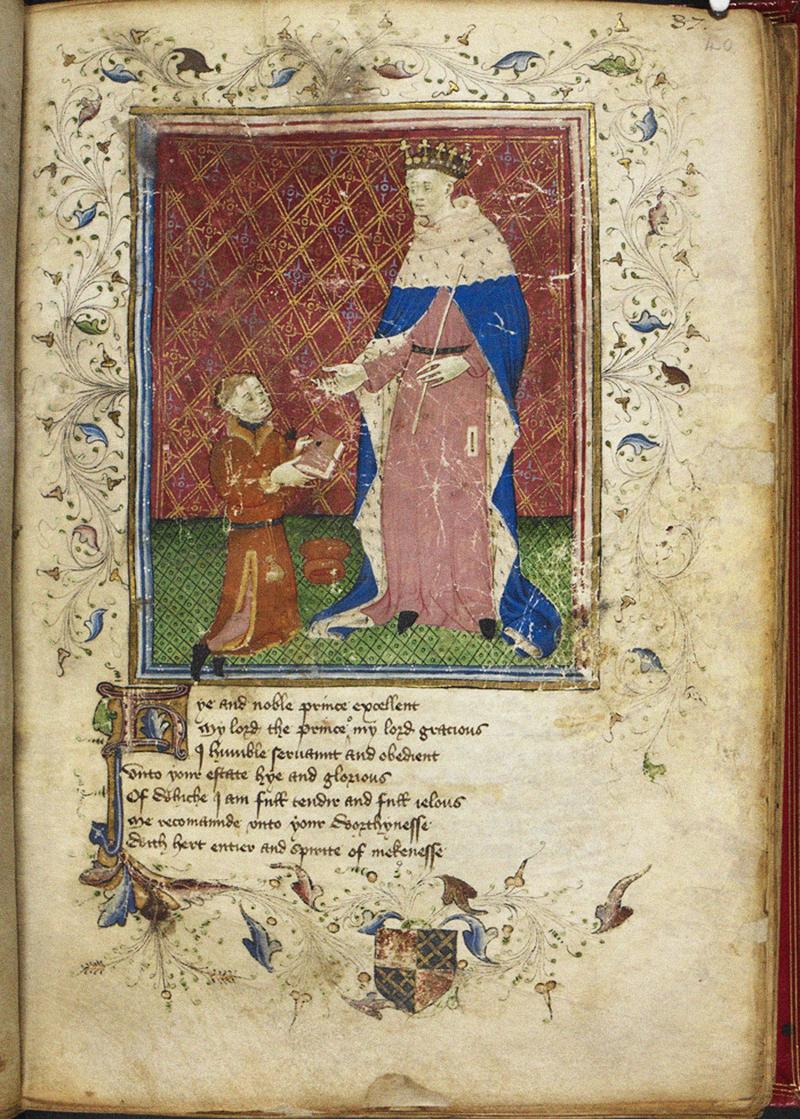 37.
40
Hye and noble prince excellent
My lord the prince my lord gracious
I humble seruaunt and obedient
Vnto your estate hye and glorious
Of whiche I am full tendir and full ielous
Me recomaunde vnto your worthynesse
With hert entier and spirite of mekenesse